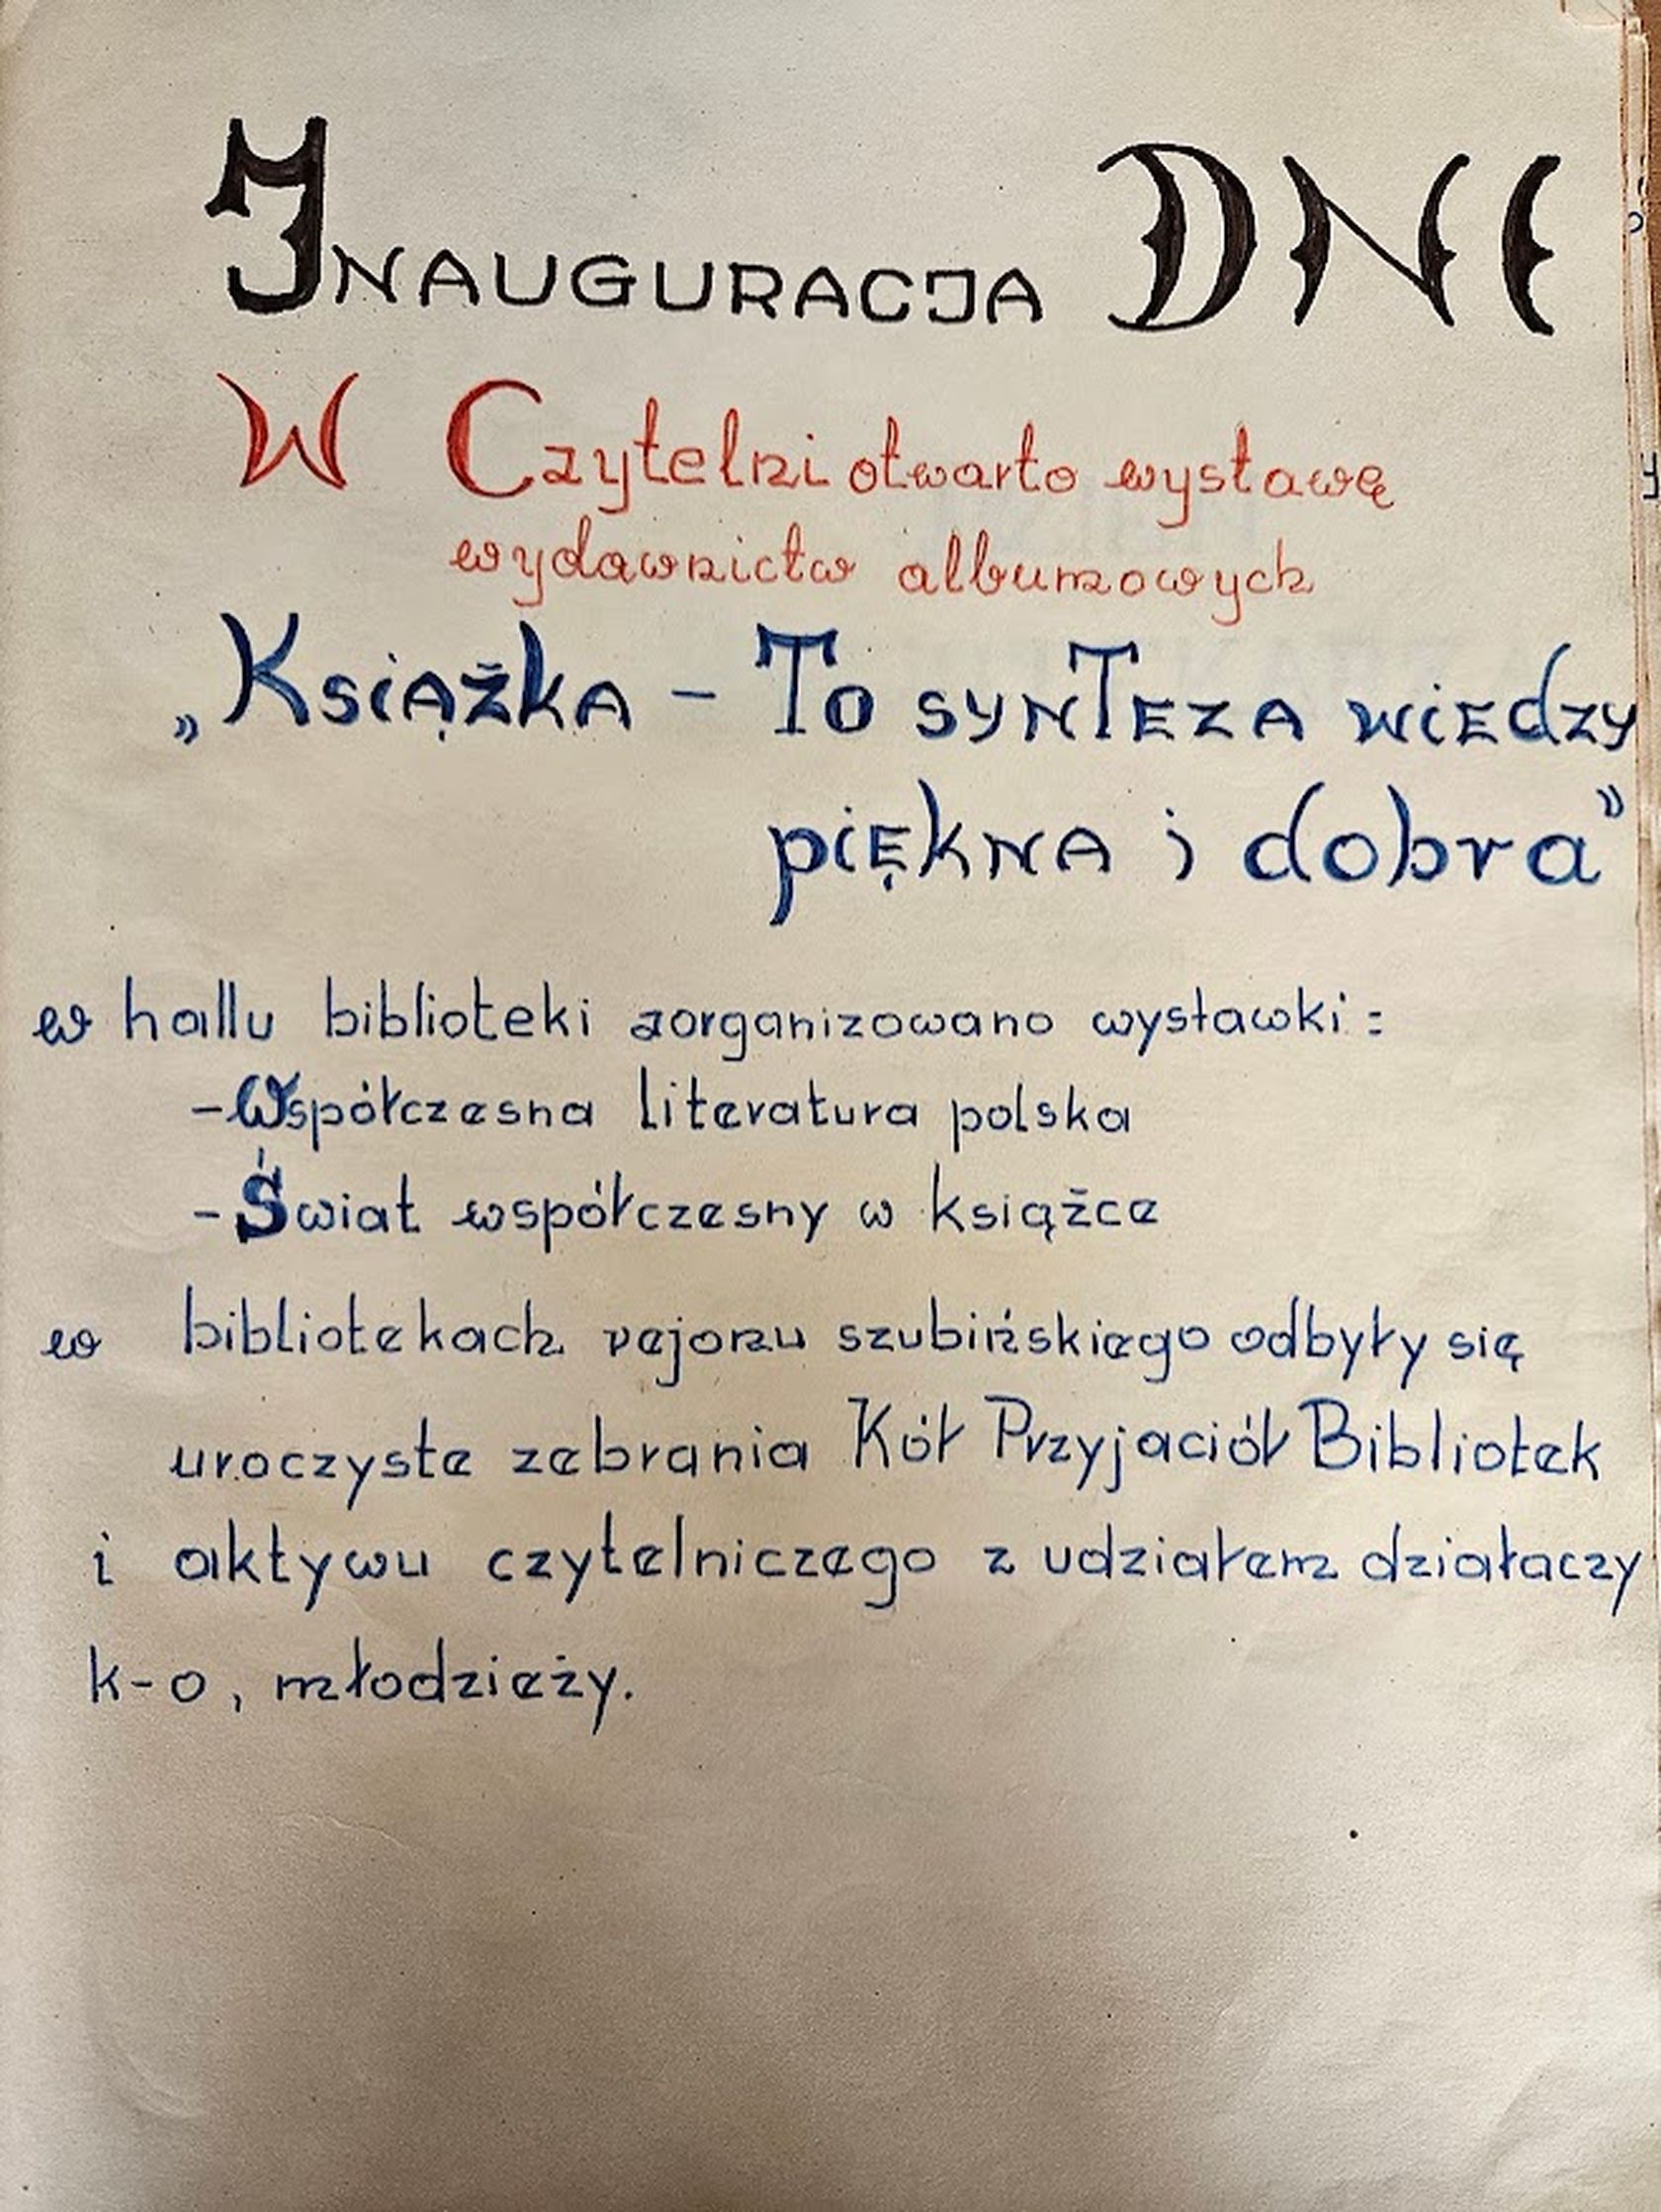 INAUGURACJA DNI
W Czytelni otwarto wystawę
wydawnictw albumowych
„KsiĄżkA - To synTEZA wiEdzy
piĘknA i dobra”
w hallu biblioteki zorganizowano wystawki:
- Współczesna literatura polska
- Świat współczesny w książce
w bibliotekach rejonu szubińskiego odbyły się
uroczyste zebrania Kół Przyjaciół Bibliotek
i aktywu czytelniczego z udziałem działaczy
k-o, młodzieży.